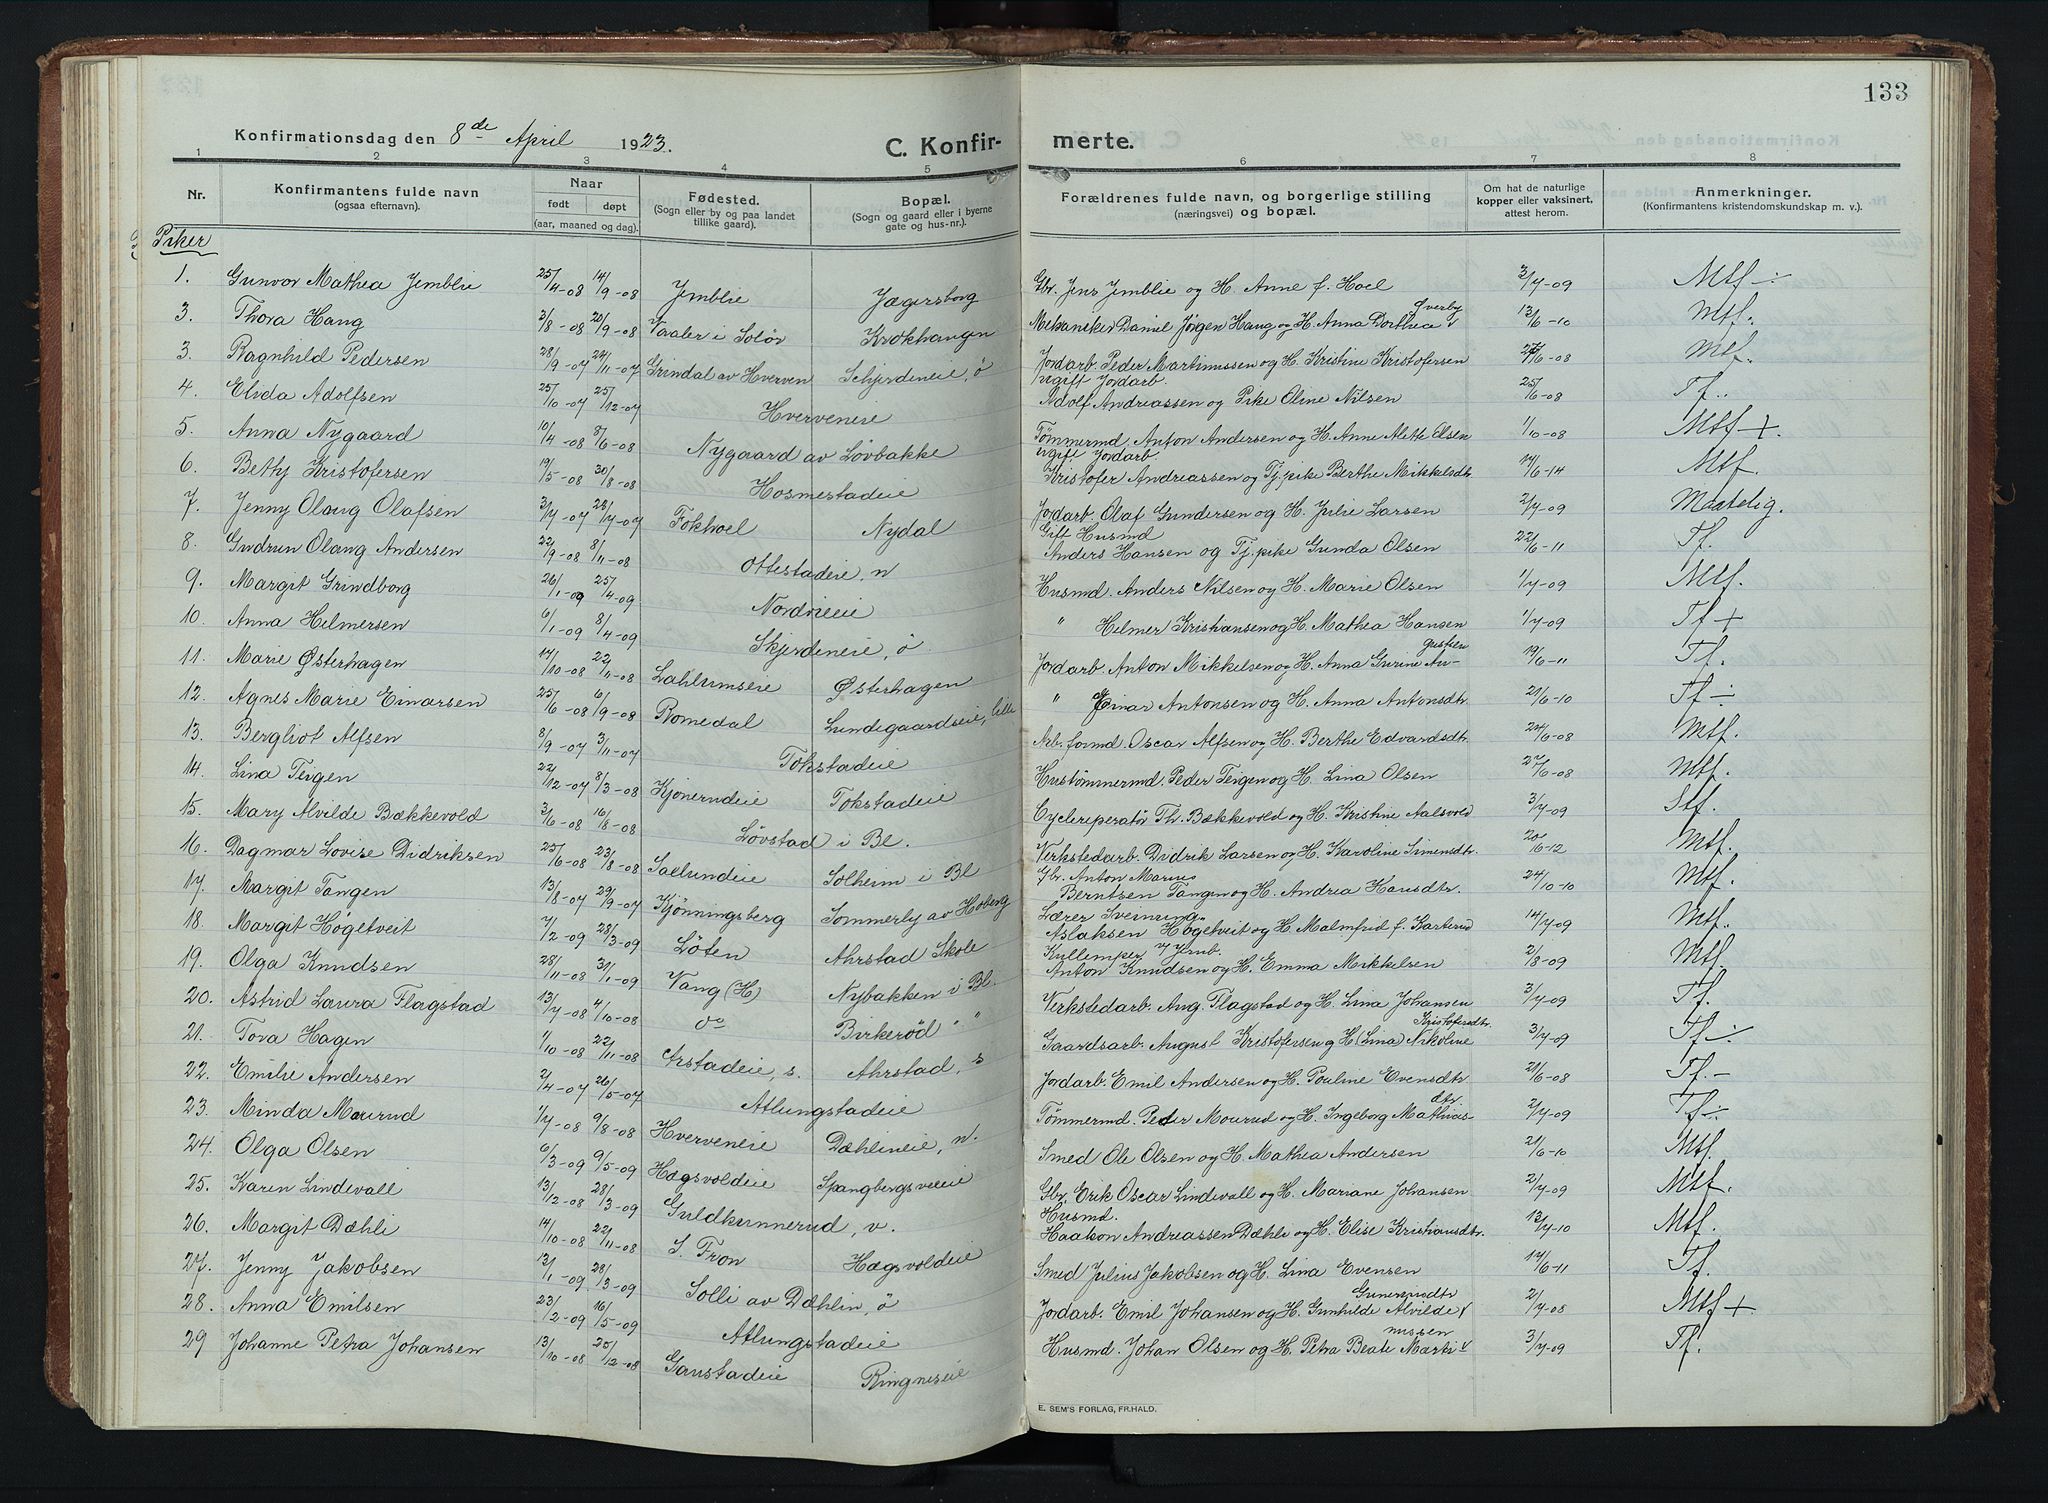 133
Konfirmationsdag den 8de April 1923.
C. Konfirmerte.
1 2 3 4 5 6 7 8
Nr. Konfirmantens fulde navn (ogsaa efternavn). Naar født døpt (aar, maaned og dag). Fødested. (Sogn eller by og paa landet tillike gaard). Bopæl. (Sogn og gaard eller i byerne gate og hus-nr.). Forældrenes fulde navn, og borgerlige stilling (næringsvei) og bopæl. Om hat de naturlige kopper eller vaksinert, attest herom. Anmerkninger. (Konfirmantens kristendomskundskap m. v.).
Piker
1. Gunvor Mathea Jemblie 25/4-08 14/9-08 Jmblie Jægersborg Gbr. Jens Jmblie og H. Anne f. Hoel 3/7-09 Mtf ÷
3. Thora Haug 3/8-08 20/9-08 Vaaler i Solør Krokhaugen Mekaniker Daniel Jørgen Haug og H. Anna Dorthea Øverby 12/6-10 Mtf.
3. Ragnhild Pedersen 28/9-07 24/11-07 Grindal av Hverven Schjerdeneie, ø Jordarb. Peder Martinussen og H. Kristine Kristofersen 25/6-08 Mtf.
4. Elida Adolfsen 25/10-07 25/12-07 Hverveneie Ugift Jordarb. Adolf Andreassen og Pike Oline Nilsen 25/6-08 Tf..
5. Anna Nygaard 10/4-08 8/6-08 Nygaard av Løvbakke Tømmermd. Anton Andersen og H. Anne Alette Olsen 1/10-08 Mtf +.
6. Betty Kristofersen 19/5-08 30/8-08 Hosmestadeie Ugift Jordarb. Kristofer Andreassen og Tj.pike Berthe Mikkelsdtr. 17/6-14 Mtf.
7. Jenny Olaug Olafsen 3/7-07 28/7-07 Fokhoel Nydal Jordarb. Olaf Gundersen og H. Julie Larsen 2/7-09 Maatelig.
8. Gudrun Olaug Andersen 22/9-08 8/11-08 Ottestadeie, n Gift Husmd Anders Hansen og Tj.pike Gunda Olsen 22/6-11 Tf.
9. Margit Grindborg 26/1-09 25/4-09 Nordvieie Husmd. Anders Nilsen og H. Marie Olsen 1/7-09 Mtf.
10. Anna Helmersen 6/1-09 8/4-09 Skjerdeneie, ø. " Helmer Kristiansen og H. Mathea Hansen 1/7-09 Tf +
11. Marie Østerhagen 17/10-08 22/11-08 Lahlumseie Østerhagen Jordarb. Anton Mikkelsen og H. Anna Gurine Augustsen 19/6-11 Tf.
12. Agnes Marie Einarsen 25/6-08 6/9-08 Romedal Lundegaardseie, lille " Einar Antonsen og H. Anna Antonsdtr. 21/6-10 Tf ÷
13. Bergliot Alfsen 8/9-07 3/11-07 Tokstadeie Arb.formd. Oscar Alfsen og H. Berthe Edvardsdtr. 25/6-08 Mtf.
14. Lina Teigen 22/12-07 8/3-08 Kjonerudeie Tokstadeie Hustømmermd. Peder Teigen og H. Lina Olsen 27/6-08 Mtf.
15. Mary Alvilde Bækkevold 3/6-08 16/8-08 Løvstad i Bl. Cyclereperatør Th. Bækkevold og H. Kristine Aalsvold 3/7-09 Stf.
16. Dagmar Lovise Didriksen 25/6-08 23/8-08 Saelundeie Solheim i Bl Verkstedarb. Didrik Larsen og H. Karoline Simensdtr. 20/6-12 Mtf.
17. Margit Tangen 13/8-07 29/9-07 Kjønningsberg Sommerly av Hoberg Gbr. Anton Marius Berntsen Tangen og H. Andrea Hansdtr. 24/10-10 Mtf.
18. Margit Høgetveit 7/2-09 28/3-09 Løten Ahrstad Skole Lærer Sveinung Aslaksen Høgetveit og H. Malmfrid f. Karterud 14/7-09 Mtf.
19. Olga Knudsen 28/11-08 31/1-09 Vang (H) Nybakken i Bl. Kullemper v/ Jernb. Anton Knudsen og H. Emma Mikkelsen 2/8-09 Mtf.
20. Astrid Laura Flagstad 13/7-08 4/10-08 do Birkerød " " Verkstedarb. Aug. Flagstad og H. Lina Johansen 3/7-09 Tf.
21. Tova Hagen 1/10-08 22/11-08 Arstadeie, s. Ahrstad, s Gaardsarb. August Kristofersen og H. (Lina) Nikoline Kristofersdtr. 3/7-09 Tf ÷
22. Emilie Andersen 2/4-07 26/5-07 Atlungstadeie Jordarb. Emil Andersen og H. Pouline Evensdtr. 21/6-08 Tf. -
23. Minda Mourud 1/7-08 9/8-08 Hverveneie Dæhlineie, n. Tømmermd. Peder Mourud og H. Ingeborg Mathiasdtr 2/7-09 Tf ÷
24. Olga Olsen 6/3-09 9/5-09 Hægsvoldeie Spangbergsveieie Smed Ole Olsen og H. Mathea Andersen 21/6-10 Mtf.
25. Karen Lindevall 13/12-08 28/3-09 Guldkunnerud, v. Gbr. Erik Oscar Lindevall og H. Mariane Johansen 2/7-09 Mtf.
26. Margit Dæhli 14/10-08 22/11-08 S. Fron Hægsvoldeie Husmd. Haakon Andreassen Dæhli og H. Elise Kristiansdtr. 13/7-10 Mtf.
27. Jenny Jakobsen 12/1-09 28/3-09 Solli av Dæhlin, ø Smed Julius Jakobsen og H. Lina Evensen 17/6-11 Tf.
28. Anna Emilsen 23/2-09 16/5-09 Atlungstadeie Jordarb. Emil Johansen og H. Gunhilde Alvilde 2/7-08 Mtf +
29 Johanne Petra Johansen 13/10-08 25/12-08 Gaustadeie Ringneseie Husmd. Johan Olsen og H. Petra Beate Martinussen 3/7-09 Tf.
E. SEM'S FORLAG, FR.HALD.